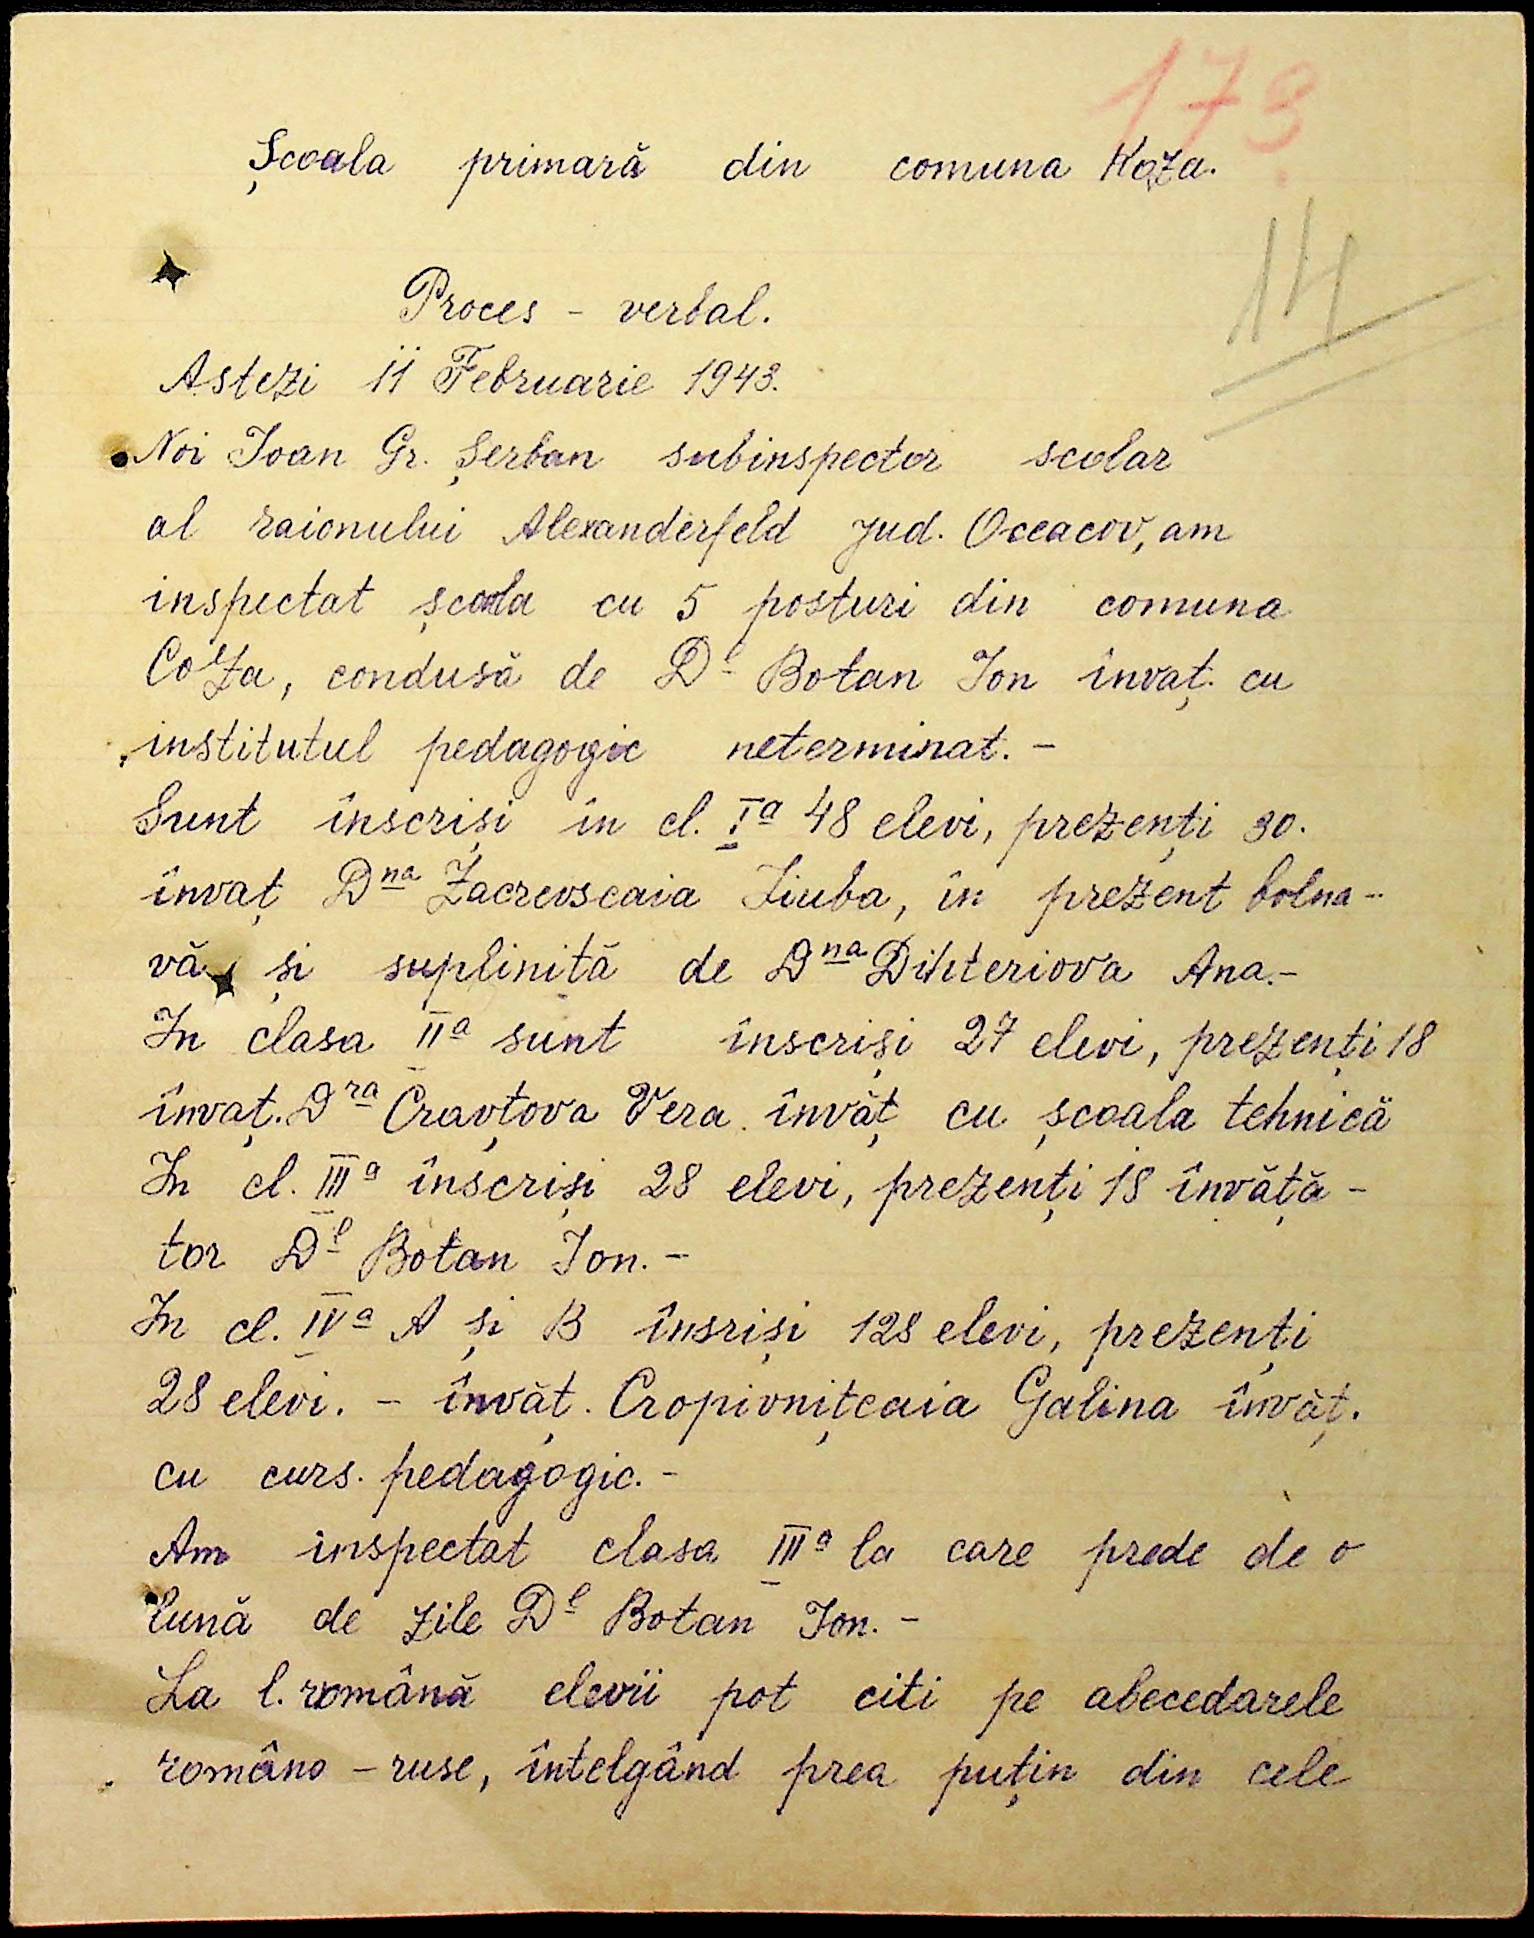 173
Școala primară din comuna Koza.
14
Proces - verbal.
Astezi 11 Februarie 1943.
Noi Ioan Gr. Șerban subinspector scolar
al raionului Alexanderfeld jud. Oceacov, am
inspectat școala cu 5 posturi din comuna
Coza, condusă de Dl Botan Ion învaț. cu
institutul pedagogic neterminat. -
Sunt înscriși în cl. Ia 48 elevi, prezenți 30.
învaț Dna Zacrevscaia Liuba, în prezent bolna-
vă și suplinită de Dna Dihteriova Ana.-
In clasa IIa sunt înscriși 27 elevi, prezenți 18
învaț. Dra Cravțova Vera învăț cu școala tehnică
In cl. IIIa înscriși 28 elevi, prezenți 18 învăță-
tor Dl Botan Ion. -
In cl. IVa A și B însriși 128 elevi, prezenți
28 elevi. - învăț. Cropivnițcaia Galina învăț.
cu curs. pedagogic. -
Am inspectat clasa IIIa la care prede de o
lună de zile Dl Botan Ion. -
La l. română elevii pot citi pe abecedarele
româno - ruse, întelgând prea puțin din cele